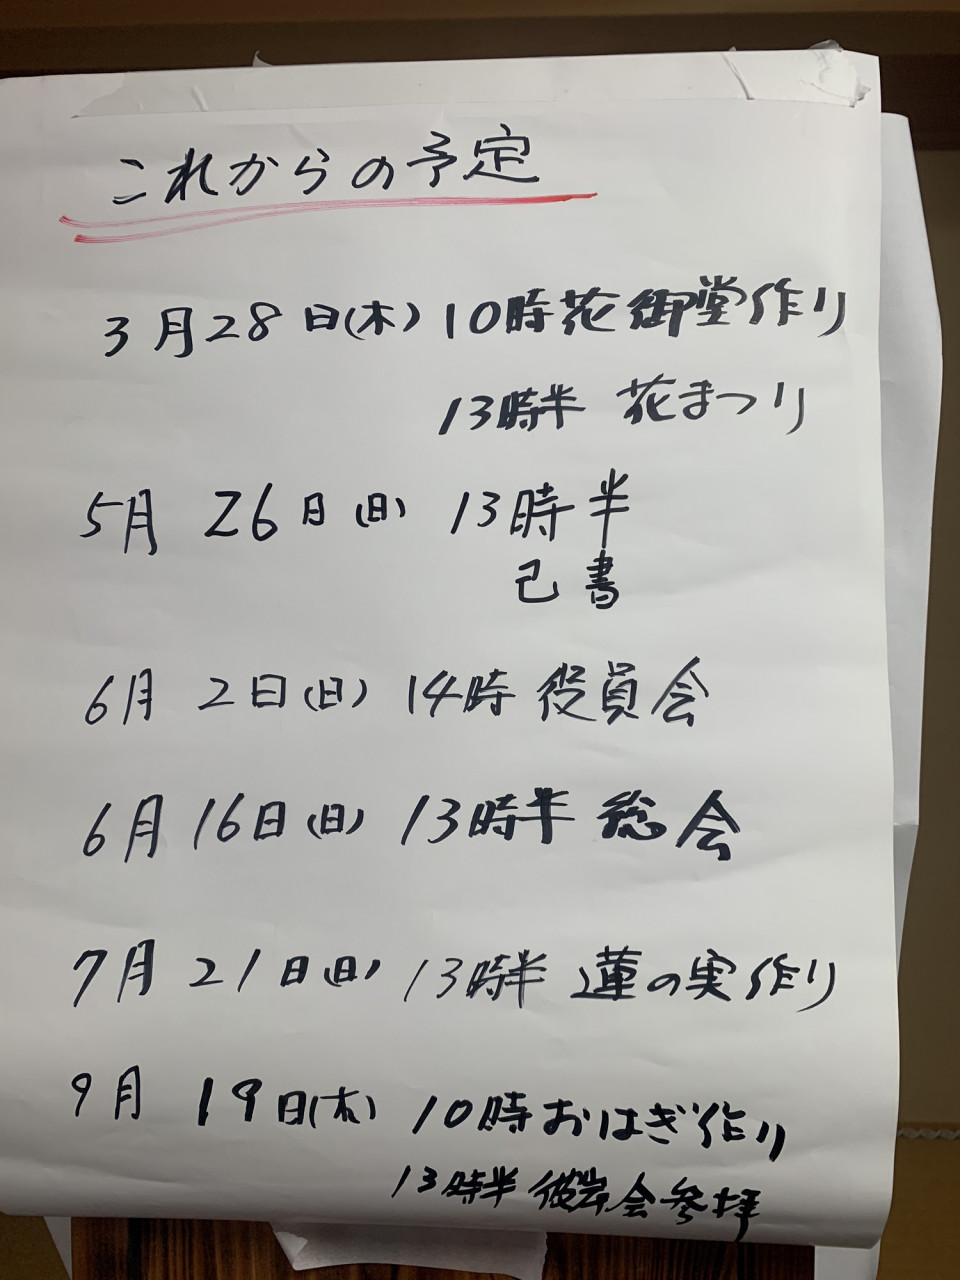 これからの予定
3月28日(木) 10時花御堂作り
13時半 花まつり
5月 26日(日) 13時半
己書
6月 2日(日) 14時 役員会
6月 16日(日) 13時半 総会
7月 21日(日) 13時半 蓮の実作り
9月 19日(木) 10時おはぎ作り
13時半 彼岸会参拝